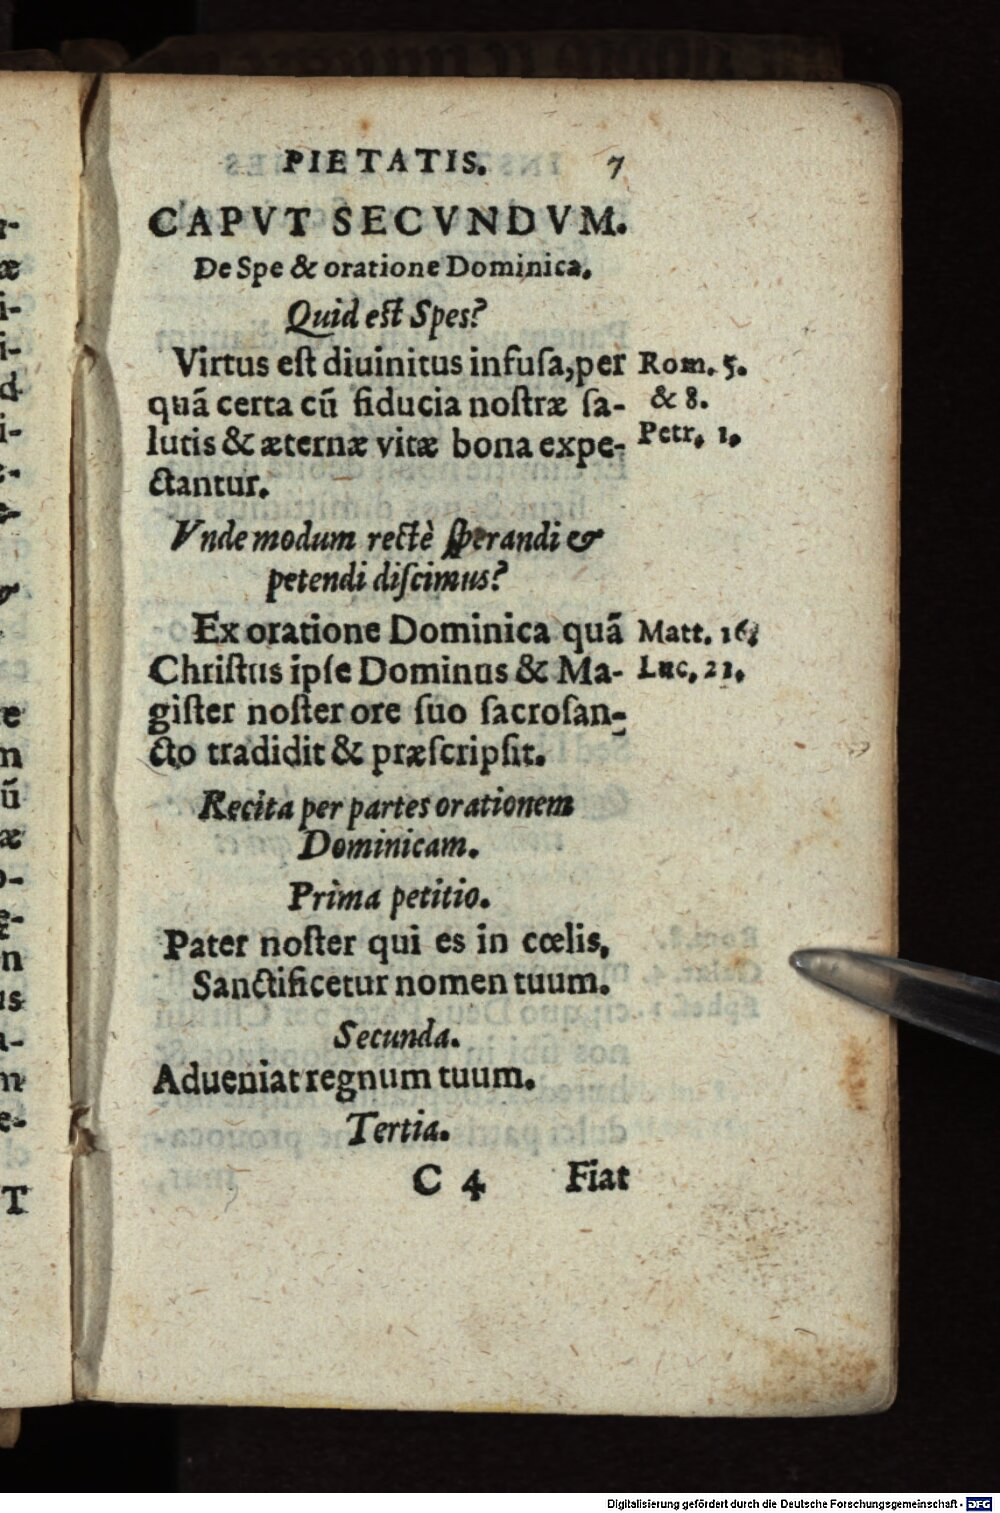 PIETATIS. 7
CAPVT SECVNDVM.
De Spe & oratione Dominica.
Quid est Spes?
Virtus eſt diuinitus infuſa, per
quã certa cũ fiducia noſtræ ſa-
lutis & æternæ vitæ bona expe-
ctantur.
Rom. 5.
& 8.
Petr. 1.
Vnde modum rectè ſperandi &
petendi diſcimus?
Ex oratione Dominica quã
Chriſtus ipſe Dominus & Ma-
giſter noſter ore ſuo ſacroſan-
cto tradidit & præſcripſit.
Matt. 16.
Luc. 21.
Recita per partes orationem
Dominicam.
Prima petitio.
Pater noſter qui es in cœlis,
Sanctificetur nomen tuum.
Secunda.
Adueniat regnum tuum.
Tertia.
C 4 Fiat
Digitalisierung gefördert durch die Deutsche Forschungsgemeinschaft - DFG